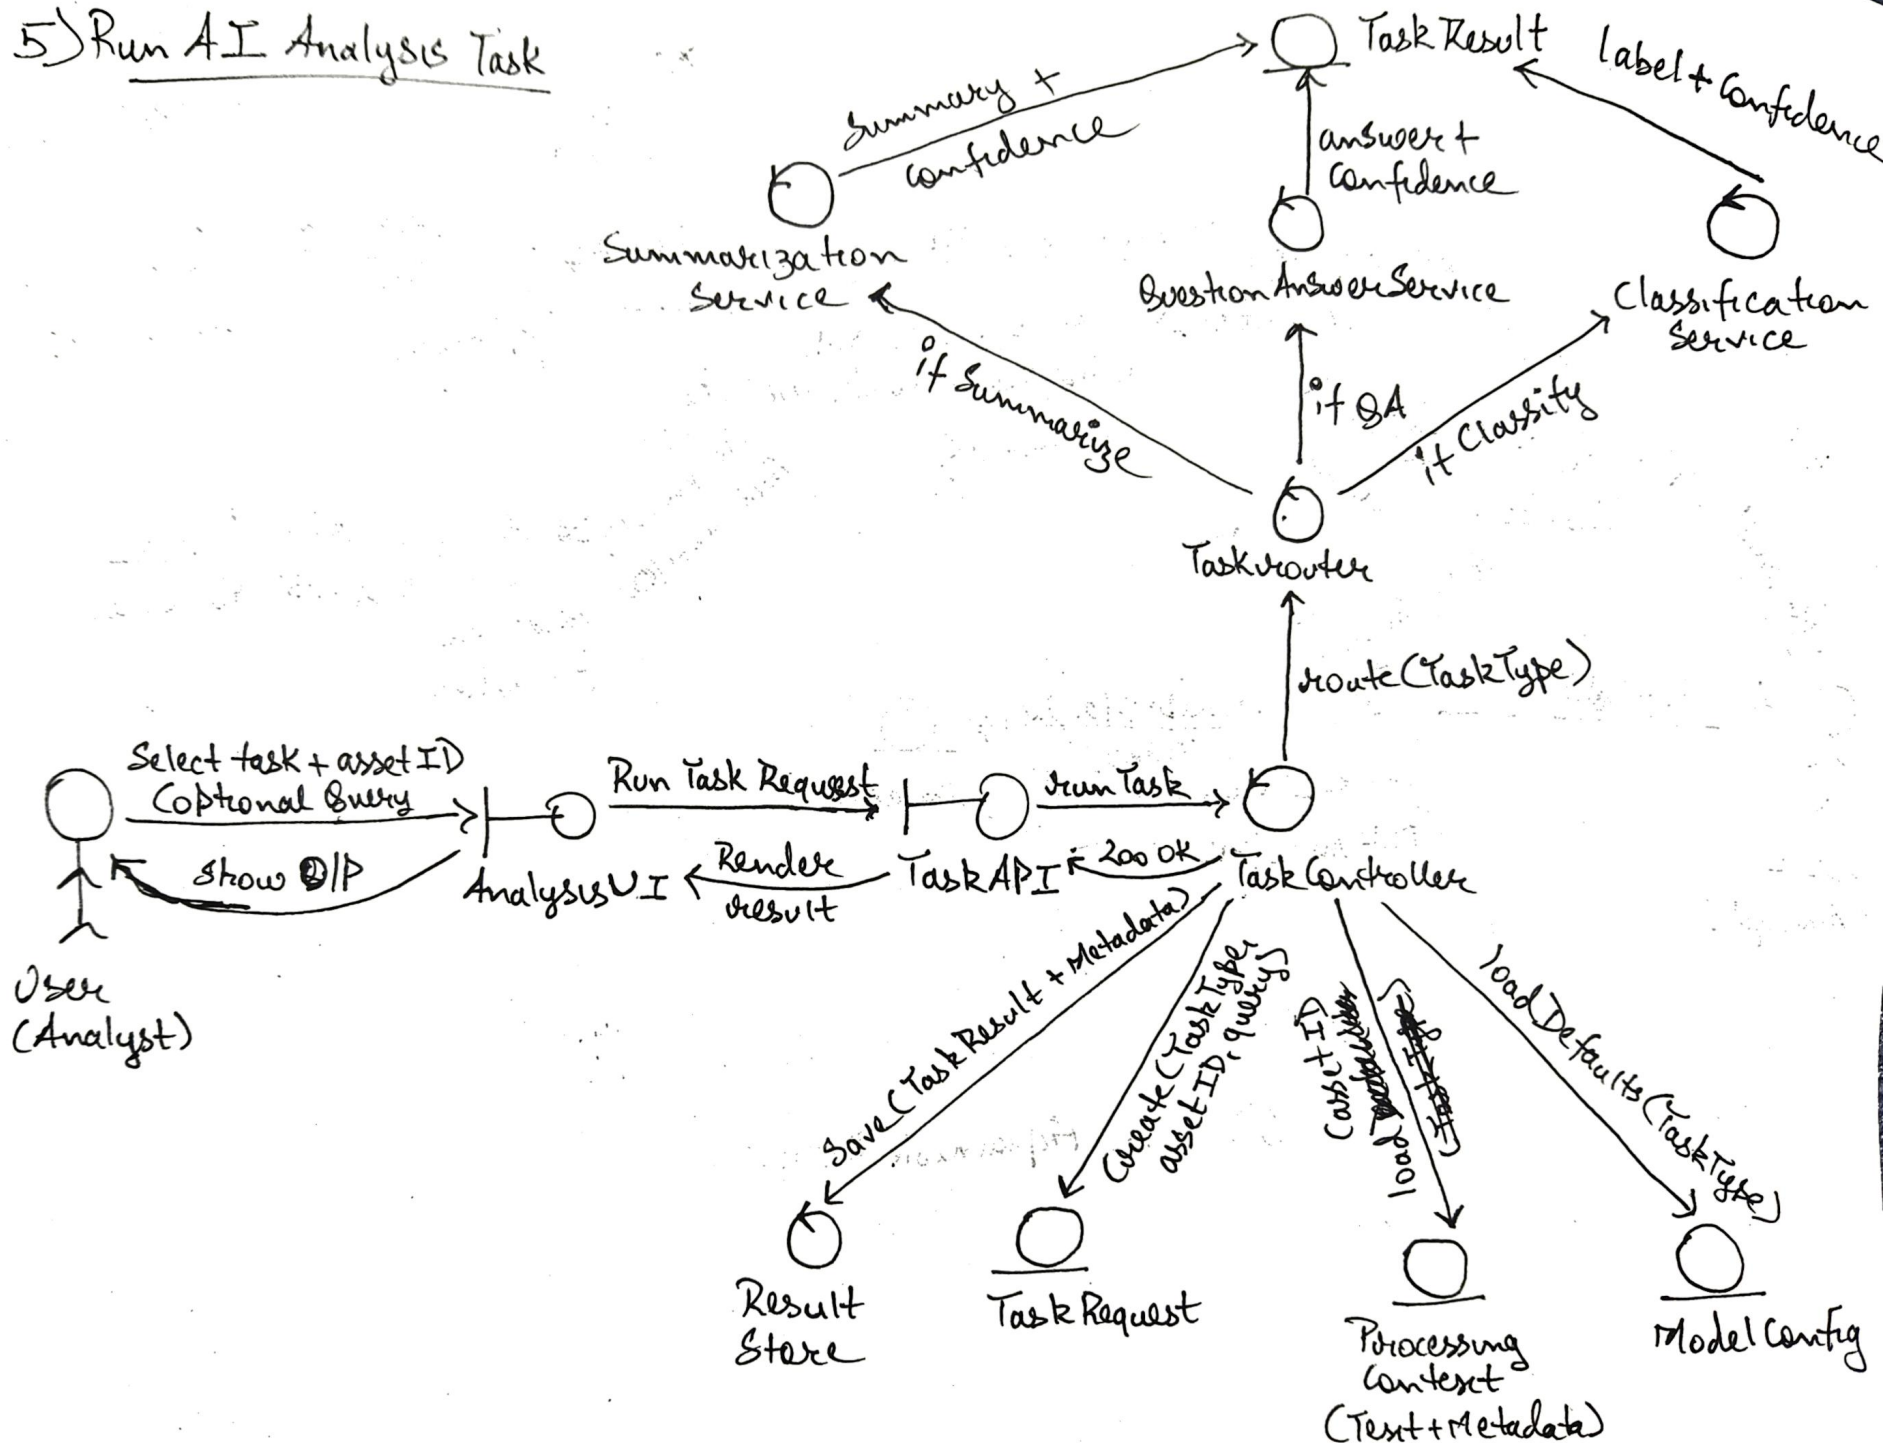 5) Run AI Analysis Task
TaskResult
label + Confidence
Summary +
confidence
answer +
Confidence
Summarization
Service
QuestionAnswerService
Classification
Service
if Summarize
if QA
if Classify
Taskrouter
route(TaskType)
Select task + asset ID
(optional Query
Run Task Request
runTask
show O/P
AnalysisUI
Render
result
TaskAPI
200 OK
TaskController
User
(Analyst)
Save(TaskResult + Metadata)
Create(TaskType,
assetID, query)
load
(assetID
loadDefaults(TaskType)
Result
Store
TaskRequest
Processing
Context
(Text+Metadata)
ModelConfig